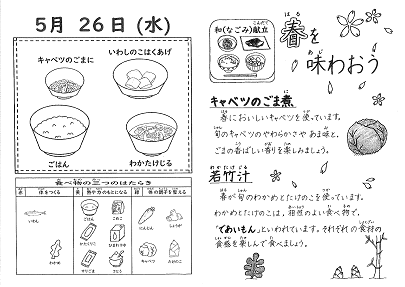 5月 26日 (水)
いわしのこはくあげ
キャベツのごまに
ごはん
わかたけじる
食べ物の三つのはたらき
赤 体をつくる 黄 熱や力のもとになる 緑 体の調子を整える
いわし
ごはん
ごま
にんじん
しょうが
かたくりこ
わかめ
さとう
キャベツ
たけのこ
和(なごみ)献立
こんだて
春を
はる
味わおう
あじ
キャベツのごま煮
春においしいキャベツを使っています。
旬のキャベツのやわらかさや あま味と、
ごまの香ばしい香りを楽しみましょう。
わかたけじる
若竹汁
春が旬のわかめとたけのこを使っています。
わかめとたけのこは、相性のよい食べ物で、
「であいもん」といわれています。それぞれの食材の
食感を楽しんで食べましょう。